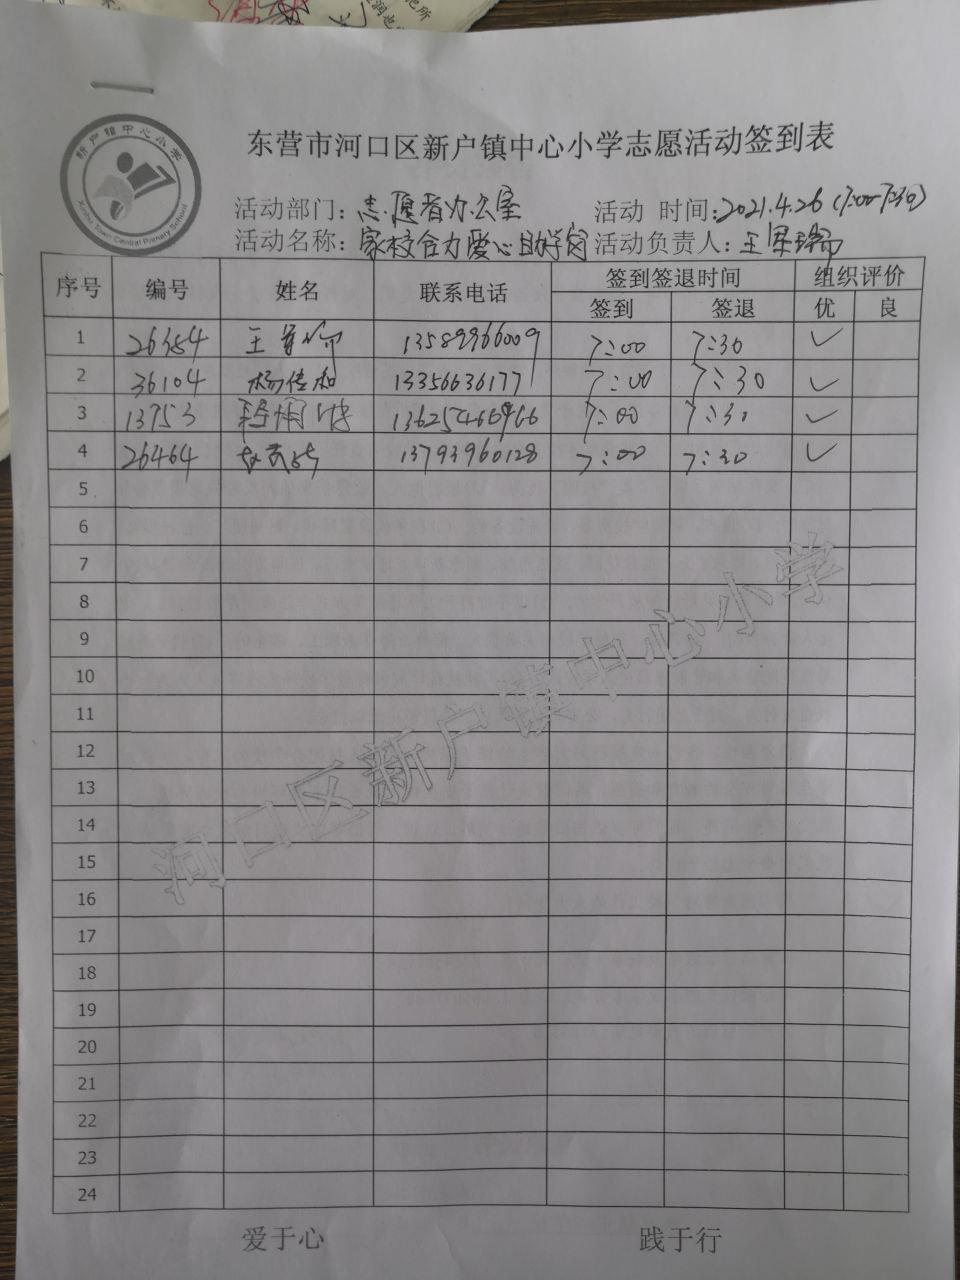 新户镇中心小学
Xinhu Town Central Primary School
东营市河口区新户镇中心小学志愿活动签到表
活动部门：志愿者办公室 活动 时间：2021.4.26 (7:00-7:30)
活动名称：家校合力爱心助学岗 活动负责人：王
序号 编号 姓名 联系电话 签到签退时间 组织评价
签到 签退 优 良
1 26354 王 13589966009 7:00 7:30 ✓
2 36104 杨佳和 13356636177 7:00 7:30 ✓
3 13753 13625466966 7:00 7:30 ✓
4 26464 13793960128 7:00 7:30 ✓
5
6
7
8
9
10
11
12
13
14
15
16
17
18
19
20
21
22
23
24
河口区新户镇中心小学
爱于心 践于行